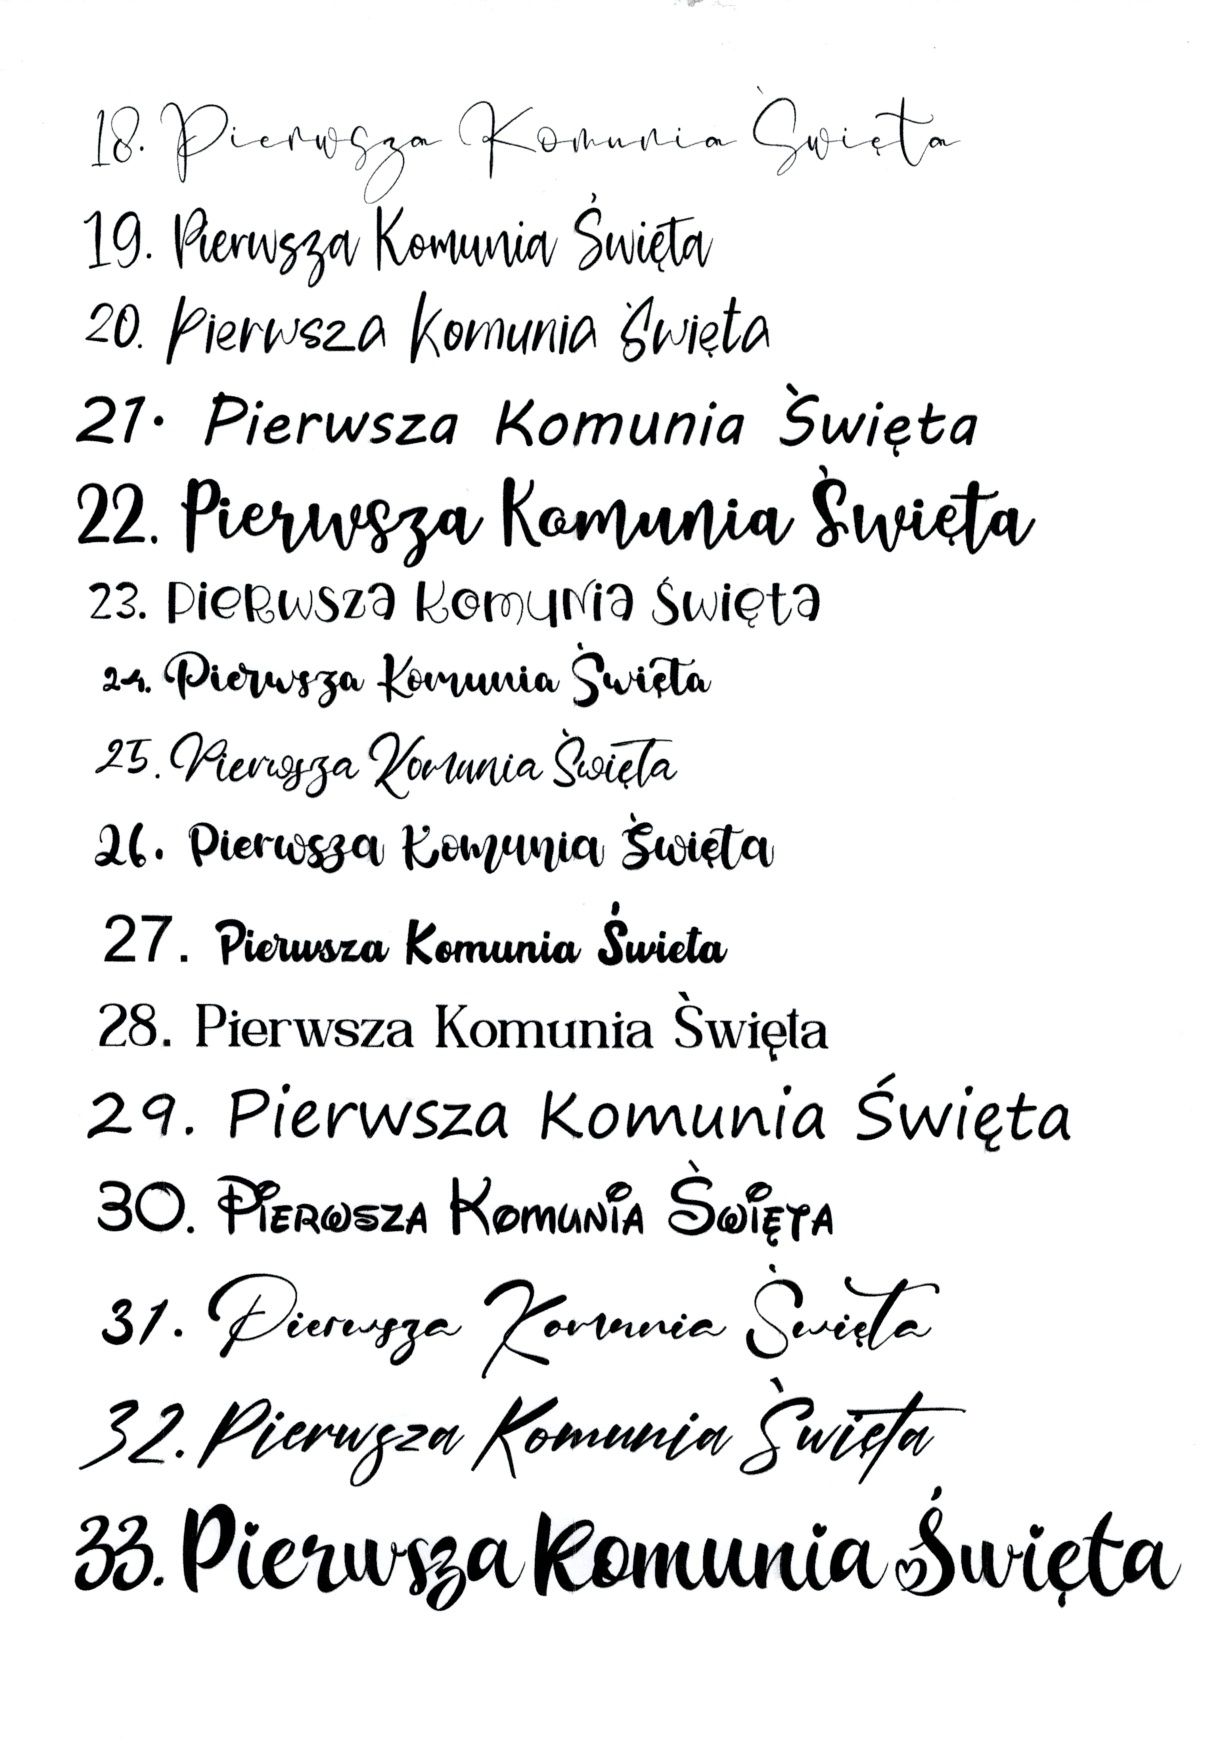 18. Pierwsza Komunia Świeta
19. Pierwsza Komunia Święta
20. Pierwsza Komunia Święta
21. Pierwsza Komunia Swięta
22. Pierwsza Komunia Święta
23. Pierwsza Komunia Święta
24. Pierwsza Komunia Święta
25. Pierwsza Komunia Święta
26. Pierwsza Komunia Święta
27. Pierwsza Komunia Świeta
28. Pierwsza Komunia S̀więta
29. Pierwsza Komunia Święta
30. Pierwsza Komunia S̀więta
31. Pierwsza Komunia S̀więta
32. Pierwsza Komunia S̀więta
33. Pierwsza Komunia Święta